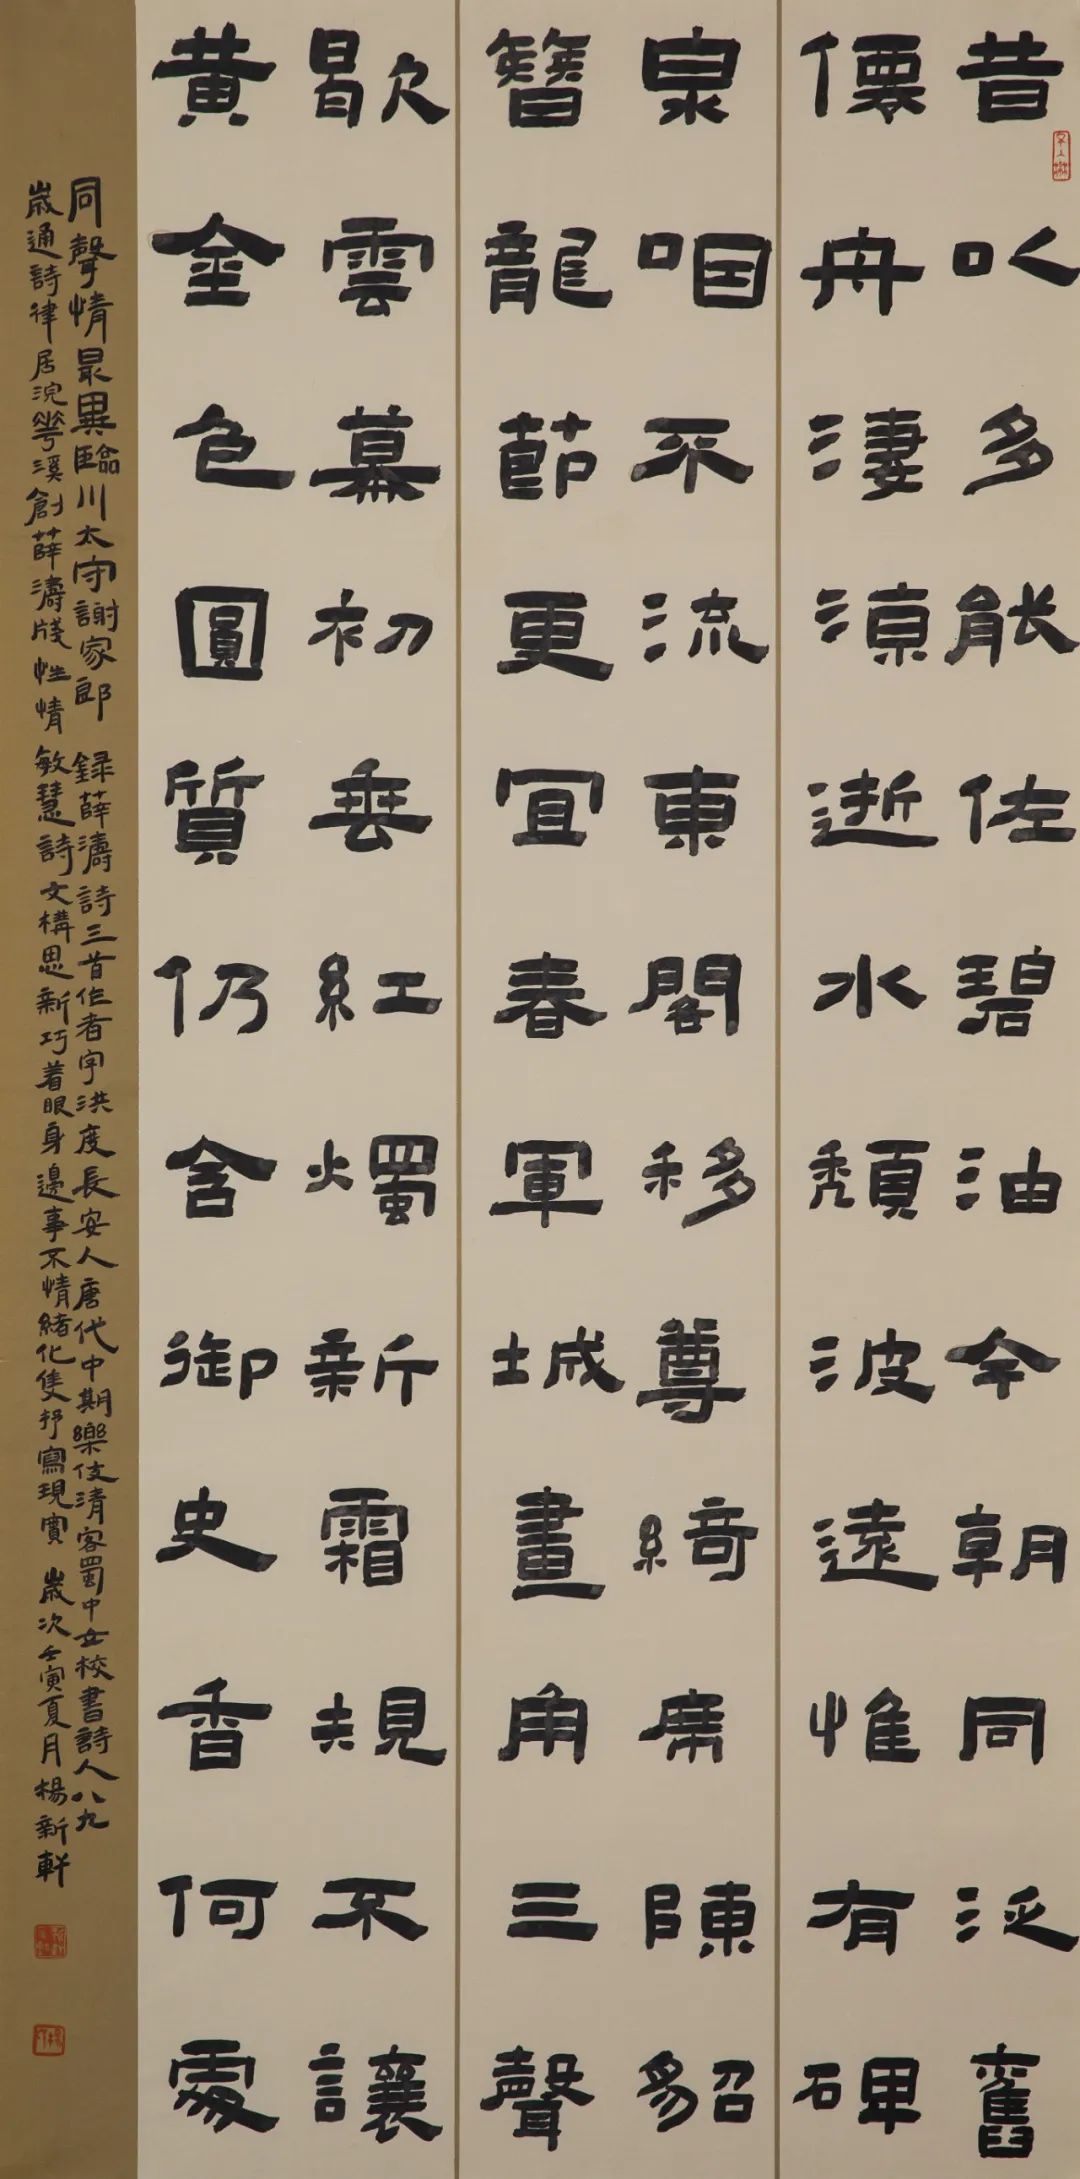 昔以多能佐碧油今朝同泛舊
僊舟淒涼逝水頹波遠惟有碑
泉咽不流東閣移尊綺席陳貂
簪龍節更宜春軍城畫角三聲
歇雲幕初垂紅燭新霜規不讓
黃金色圓質仍含御史香何處
同聲情最異臨川太守謝家郎 錄薛濤詩三首作者字洪度長安人唐代中期樂伎清客蜀中女校書詩人八九
歲通詩律居浣華溪創薛濤牋性情敏慧詩文構思新巧着眼身邊事不情緒化隻抒寫現實 歲次壬寅夏月楊新軒